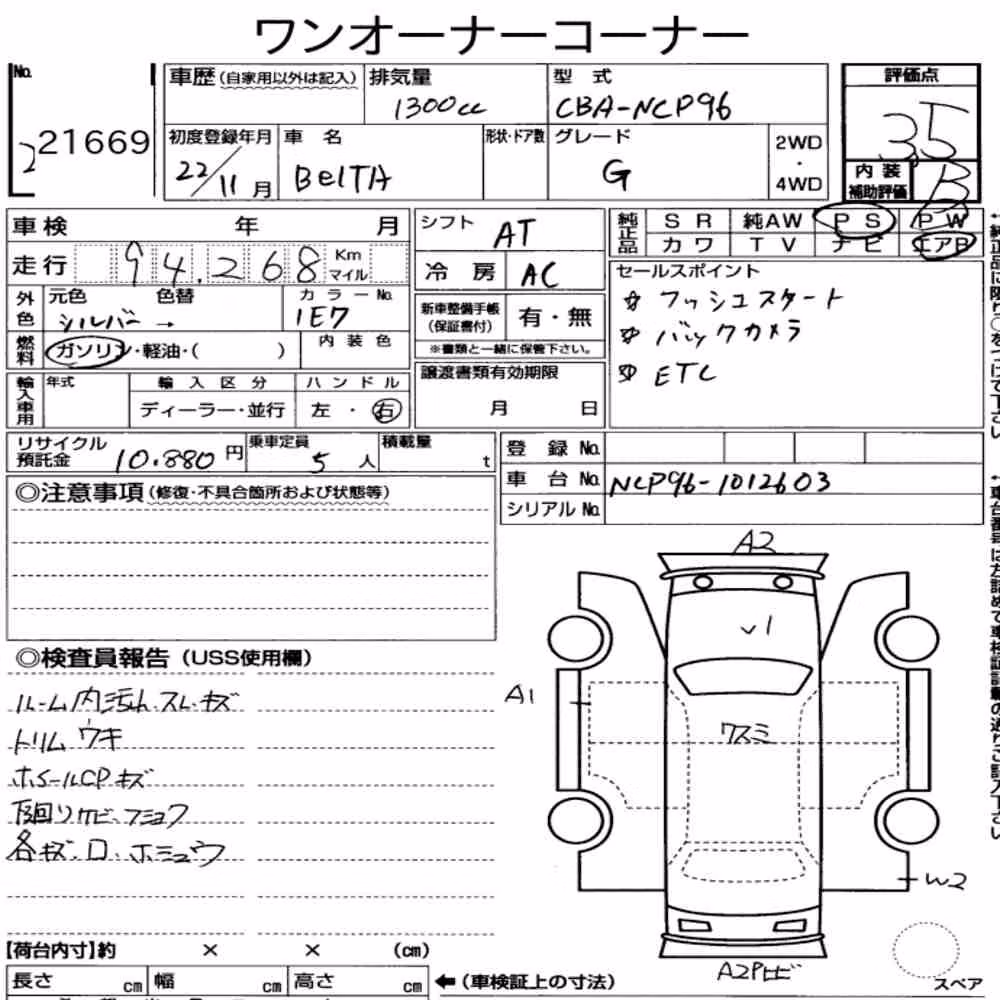 ワンオーナーコーナー
No. 221669
車歴(自家用以外は記入) 排気量 1300cc 型式 CBA-NCP96
初度登録年月 22/11月 車名 BelTA 形状・ドア数 グレード G 2WD・4WD
評価点 3.5
内装補助評価 B
車検 年 月
走行 94,268 Km マイル
外色 元色 シルバー → 色替 カラーNo. 1E7
燃料 ガソリン・軽油・( ) 内装色
輸入車用 年式 輸入区分 ディーラー・並行 ハンドル 左・右
シフト AT
冷房 AC
新車整備手帳(保証書付) 有・無
※書類と一緒に保管下さい。
譲渡書類有効期限
月 日
純正品 SR 純AW PS PW
カワ TV ナビ エアB
セールスポイント
☆ プッシュスタート
☆ バックカメラ
☆ ETC
リサイクル預託金 10.880円 乗車定員 5人 積載量 t
登録No.
車台No. NCP96-1012603
シリアルNo.
◎注意事項(修復・不具合箇所および状態等)
◎検査員報告(USS使用欄)
ルーム内汚れ.スレ.キズ
トリムウキ
ホイールCPキズ
下回りサビ.フショク
各キズ.
A2
V1
A1
ワスミ
W2
A2Pヒビ
スペア
【荷台内寸】約 × × (cm)
長さ cm 幅 cm 高さ cm
←(車検証上の寸法)